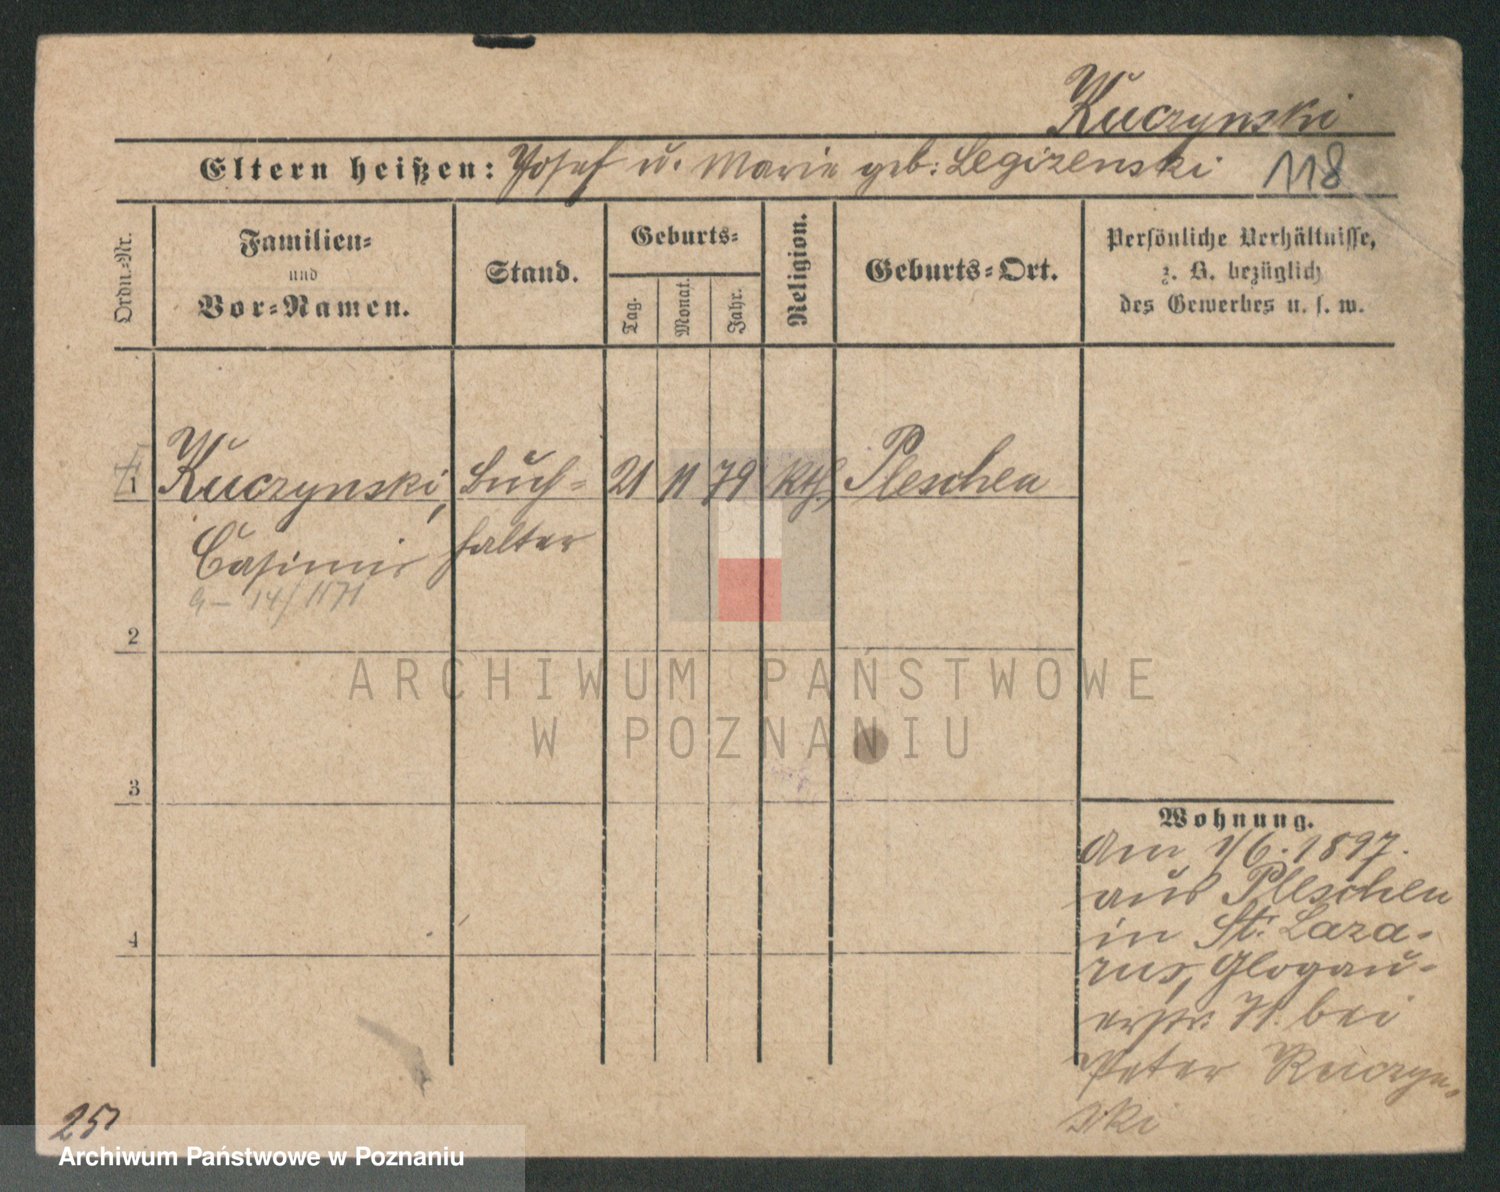 Kuczynski
Eltern heißen: Josef u. Marie geb: Legizenski 118
Ordn.-Nr.
Familien-
und
Vor-Namen.
Stand.
Geburts-
Tag.
Monat.
Jahr.
Religion.
Geburts-Ort.
Persönliche Verhältnisse,
z. B. bezüglich
des Gewerbes u. s. w.
1 Kuczynski, Buch- 21 11 79 kth. Pleschen
Casimir halter
14/1171
2
3
4
ARCHIWUM PAŃSTWOWE
W POZNANIU
Wohnung.
Am 1/6. 1897.
aus Pleschen
in St. Laza-
rus, Glogau-
erstr. bei
Peter Kuczyn-
ski
25
Archiwum Państwowe w Poznaniu